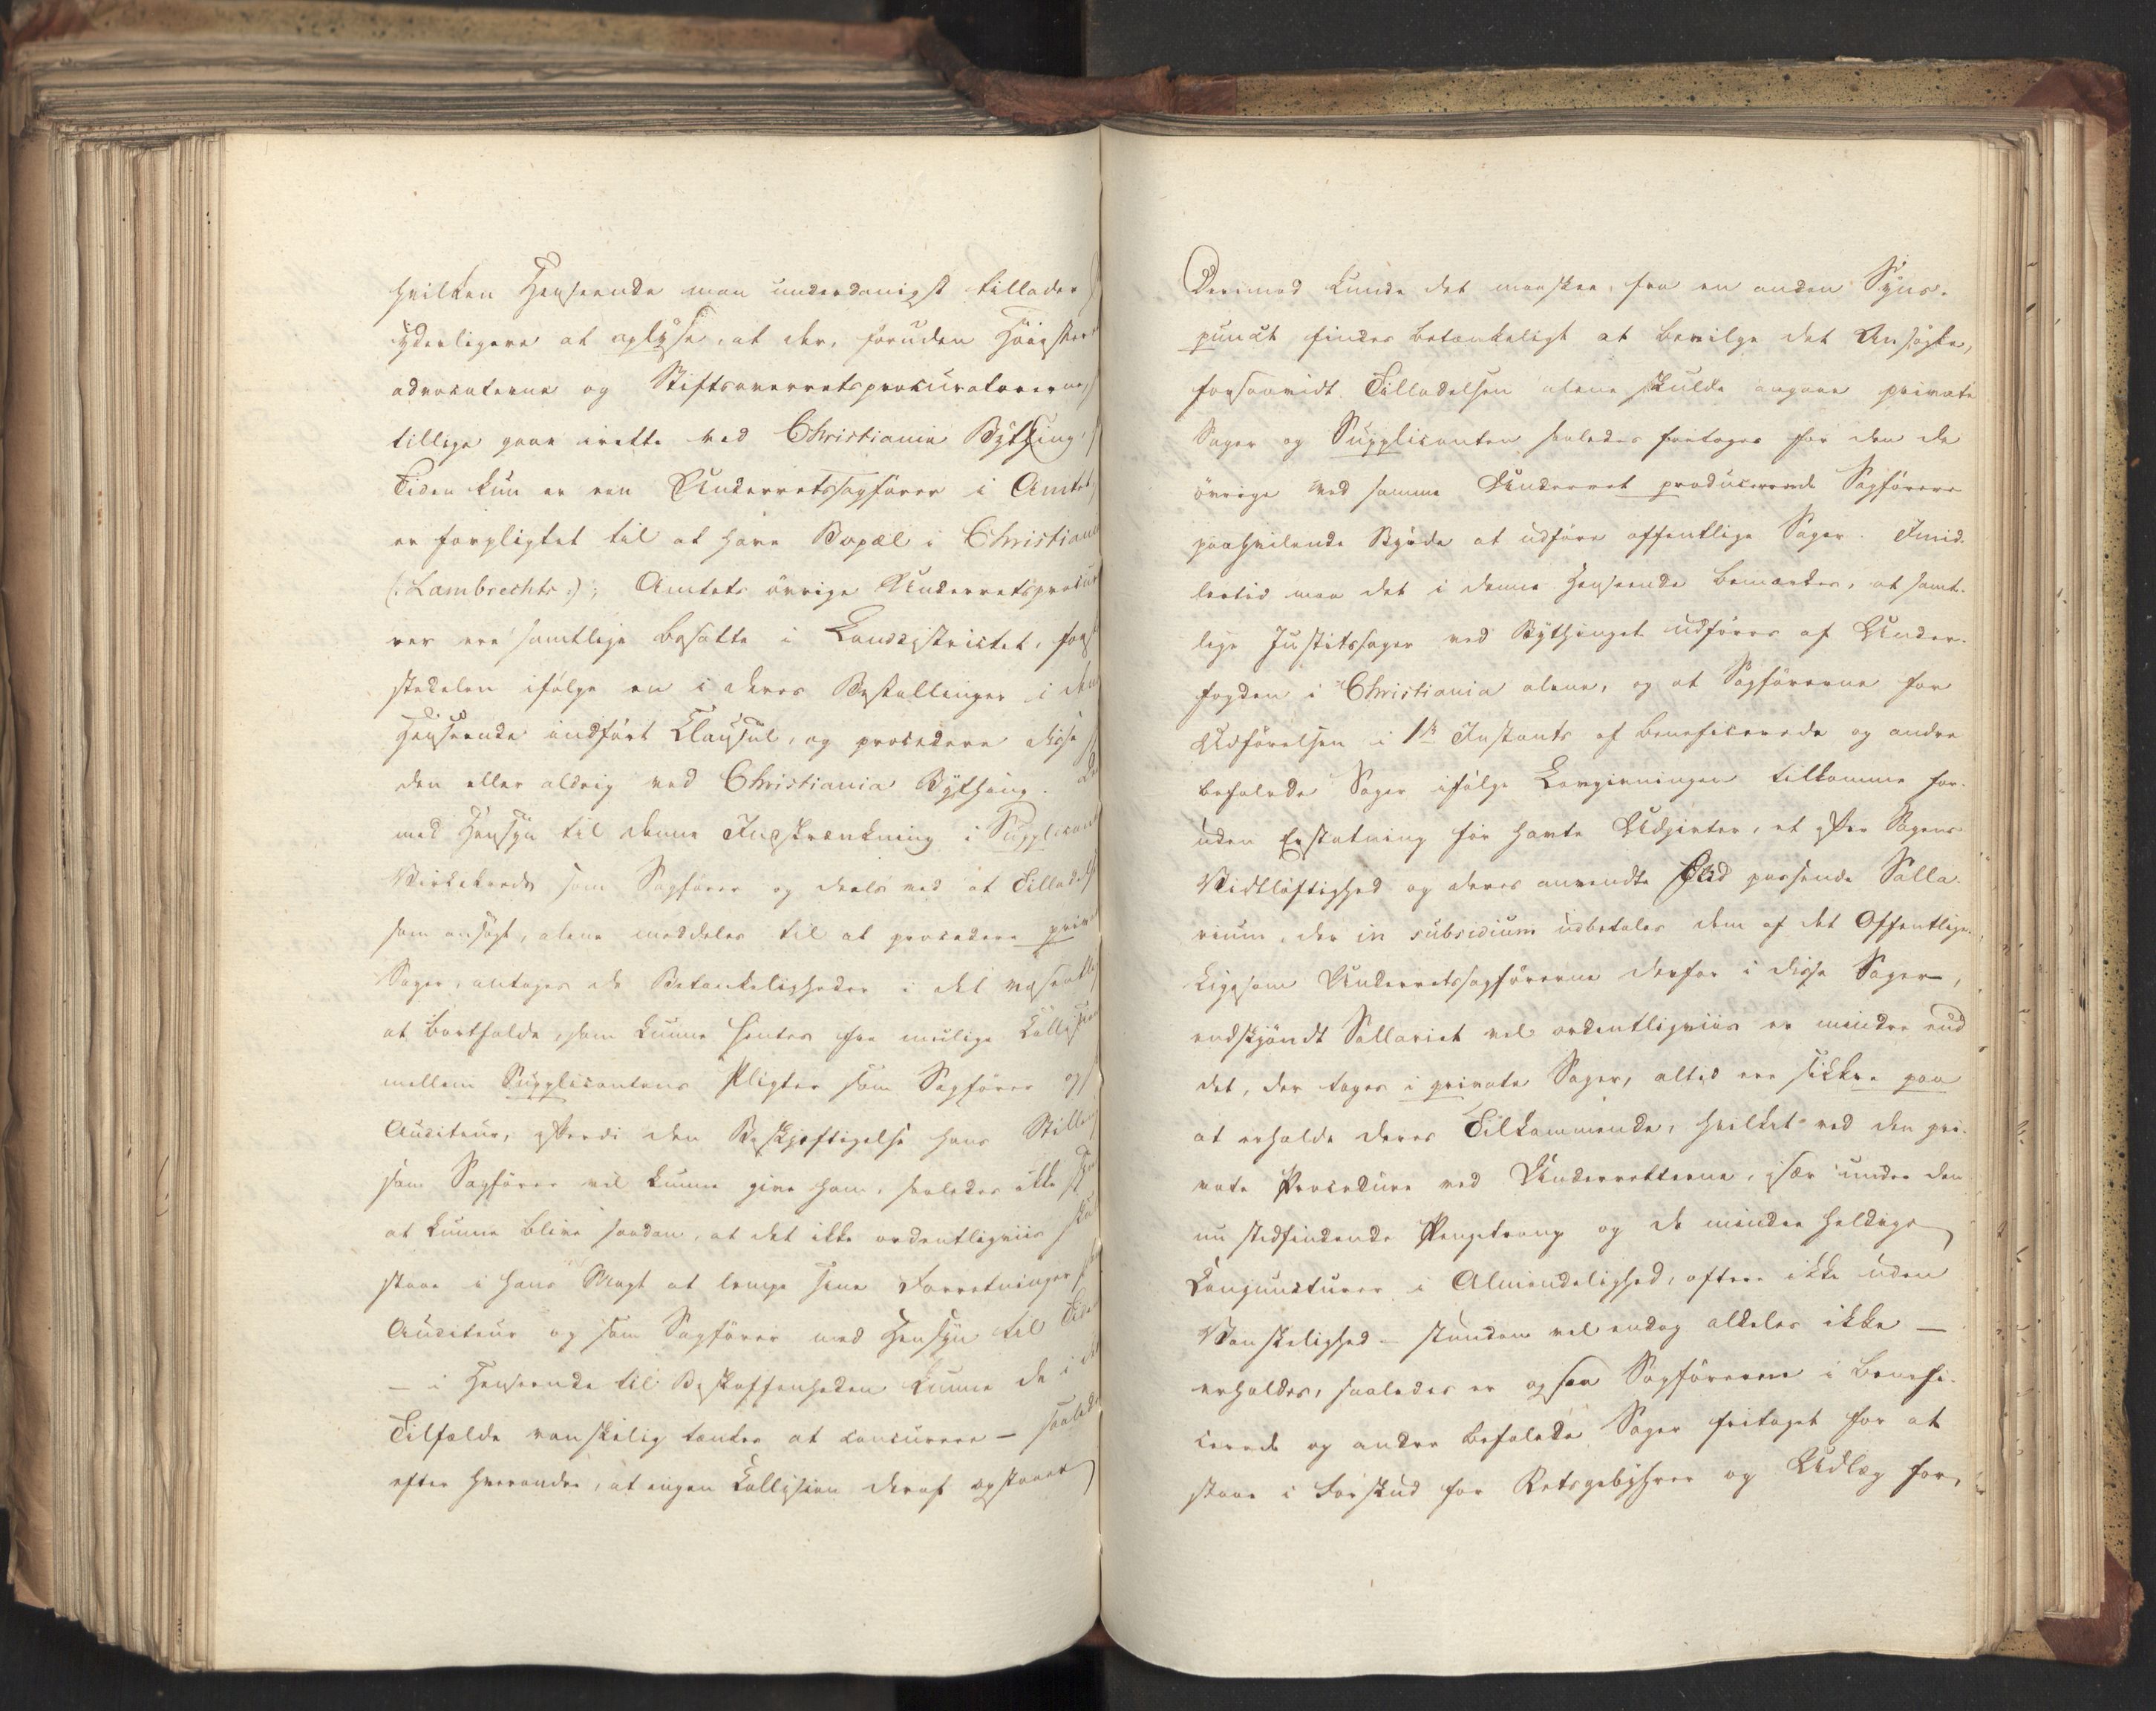 hvilken Henseende man underdanigst tillader
yderligere at oplyse, at der, foruden Höieste
advocaterne og Stiftsoverretsprocuratorerne,
tillige gaae irette ved Christiania Bything,
Tiden kun er een Underretssagförer i Amtet,
er forpligtet til at have Bopæl i Christiania
(: Lambrechts :); Amtets övrige Underretsprocu
rer ere samtlige bosatte i Landdistrictet, for
stedelen ifölge en i deres Bestallinger i denne
Henseende indfört Clausul, og procedere disse
den eller aldrig ved Christiania Bything.
med Hensyn til denne Indskrænkning i Supplicant
Virkekreds som Sagförer og deels ved at Tillad
som ansögt, alene meddeles til at procedere priv
Sager, antages de Betænkeligheder i det væsentlig
at bortfalde, som kunne hentes fra mulige Collision
mellem Supplicantens Pligter som Sagförer og
Auditeur, efterdi den Beskjæftigelse hans Stilling
som Sagförer vil kunne give ham, saaledes ikke
at kunne blive saadan, at det ikke ordentligviis
staae i hans Magt at lempe sine Forretninger
Auditeur og som Sagförer med Hensyn til Tiden
— i Henseende til Beskaffenheden kunne de i
Tilfælde vanskelig tænkes at concurrere — saaledes
efter hverandre, at ingen Collision deraf opstaaer
Derimod kunde det maaskee, fra en anden Syns-
punct findes betænkeligt at bevilge det Ansögte,
forsaavidt Tilladelsen alene skulde angaae private
Sager og Supplicanten saaledes fritages for den de
övrige ved samme Underret procederende Sagförere
paahvilende Byrde at udföre offentlige Sager. Imid-
lertid maa det i denne Henseende bemærkes, at samt-
lige Justitssager ved Bythinget udföres af Under-
fogden i Christiania alene, og at Sagförerne for
Udförelsen i 1ste Instants af beneficerede og andre
befalede Sager ifölge Lovgivningen tilkomme for-
uden Erstatning for havte Udgivter, et efter Sagens
Vidtlöftighed og deres anvendte Flid passende Salla-
rium, der in subsidium udbetales dem af det Offentlige.
Ligesom Underretssagförerne derfor i disse Sager,
endskjöndt Sallariet vel ordentligviis er mindre end
det, der tages i private Sager, altid ere sikkre paa
at erholde deres Tilkommende, hvilket ved den pri-
vate Procedure ved Underretterne, især under den
nu stedfindende Pengetrang og de mindre heldige
Conjuncturer i Almindelighed, oftere ikke uden
Vanskelighed — stundom vel endog aldeles ikke —
erholdes, saaledes er ogsaa Sagförerne i benefi-
cerede og andre befalede Sager fritaget for at
staae i Forskud for Retsgebyhrer og Udlæg for,